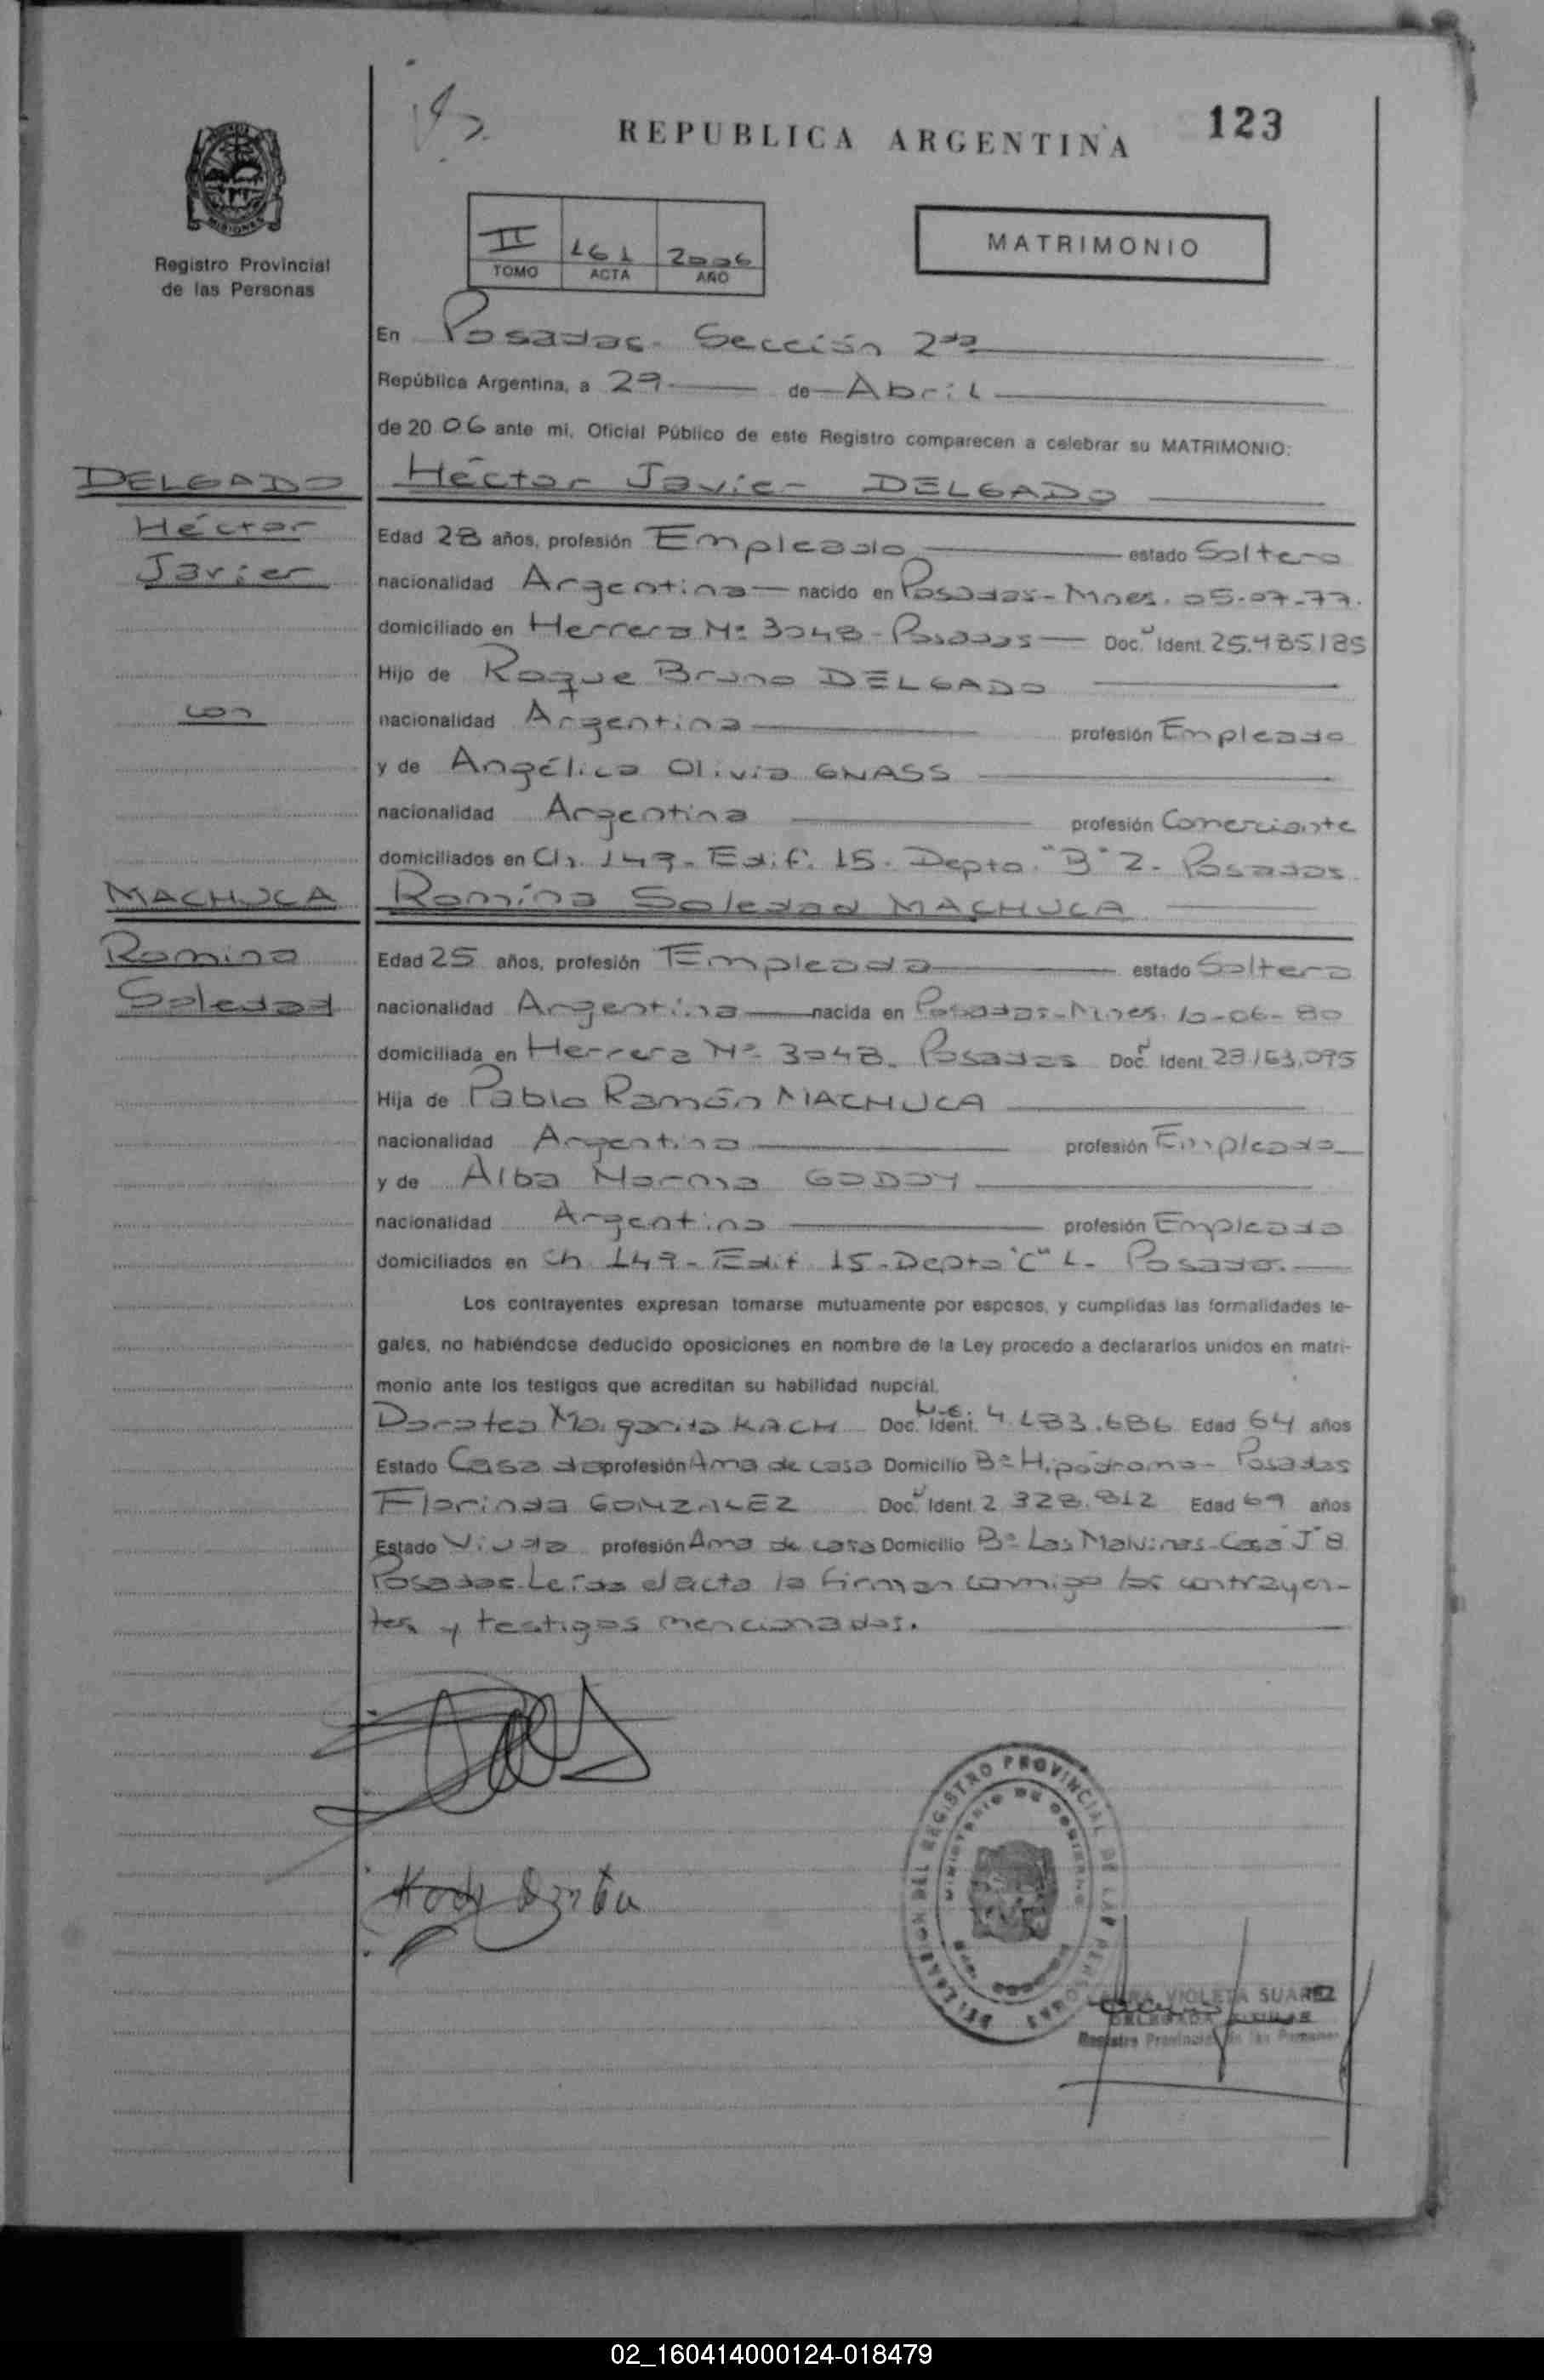 REPUBLICA ARGENTINA 123
MISIONES
Registro Provincial
de las Personas
II 161 2006
TOMO ACTA AÑO
MATRIMONIO
En Posadas - Sección 2da
República Argentina, a 29 de Abril
de 20 06 ante mi, Oficial Público de este Registro comparecen a celebrar su MATRIMONIO:
DELGADO Héctor Javier DELGADO
Héctor Edad 28 años, profesión Empleado estado Soltero
Javier nacionalidad Argentina nacido en Posadas - Mnes. 05-07-77.
domiciliado en Herrera Nº 3048 - Posadas Doc. N Ident. 25.485.185
Hijo de Roque Bruno DELGADO
con nacionalidad Argentina profesión Empleado
y de Angélica Olivia GNASS
nacionalidad Argentina profesión Comerciante
domiciliados en Ch. 149 - Edif. 15 - Depto. "B" 2 - Posadas
MACHUCA Romina Soledad MACHUCA
Romina Edad 25 años, profesión Empleada estado Soltera
Soledad nacionalidad Argentina nacida en Posadas - Mnes. 10-06-80
domiciliada en Herrera Nº 3048 - Posadas Doc. N Ident. 28.163.095
Hija de Pablo Ramón MACHUCA
nacionalidad Argentina profesión Empleado
y de Alba Norma GODOY
nacionalidad Argentina profesión Empleada
domiciliados en Ch 149 - Edif 15 - Depto "C" 1 - Posadas.
Los contrayentes expresan tomarse mutuamente por esposos, y cumplidas las formalidades le-
gales, no habiéndose deducido oposiciones en nombre de la Ley procedo a declararlos unidos en matri-
monio ante los testigos que acreditan su habilidad nupcial.
Dorotea Margarita KACH Doc. Ident. 4.183.686 Edad 64 años
Estado Casada profesión Ama de casa Domicilio Bº Hipódromo - Posadas
Florinda GONZALEZ Doc. N Ident. 2.328.812 Edad 69 años
Estado Viuda profesión Ama de casa Domicilio Bº Las Malvinas - Casa J 8
Posadas. Leída el acta la firman conmigo los contrayen-
tes y testigos mencionados.
DELEGACION DEL REGISTRO PROVINCIAL DE LAS PERSONAS
MINISTERIO DE GOBIERNO
VIOLETA SUAREZ
DELEGADA TITULAR
Registro Provincial de las Personas
02_160414000124-018479